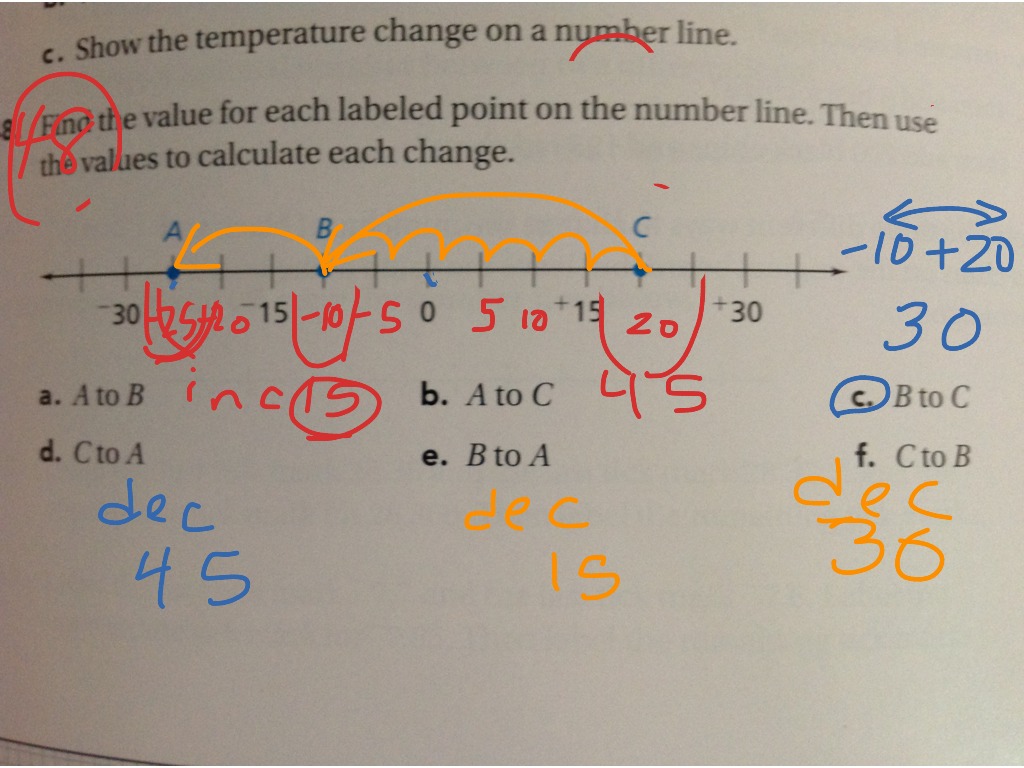 c. Show the temperature change on a number line.
48 Find the value for each labeled point on the number line. Then use
the values to calculate each change.
A B C
-10 + 20
⁻30 -25 -20 ⁻15 -10 -5 0 5 10 ⁺15 20 ⁺30
30
a. A to B inc 15 b. A to C 45 c. B to C
d. C to A e. B to A f. C to B
dec dec dec
45 15 30